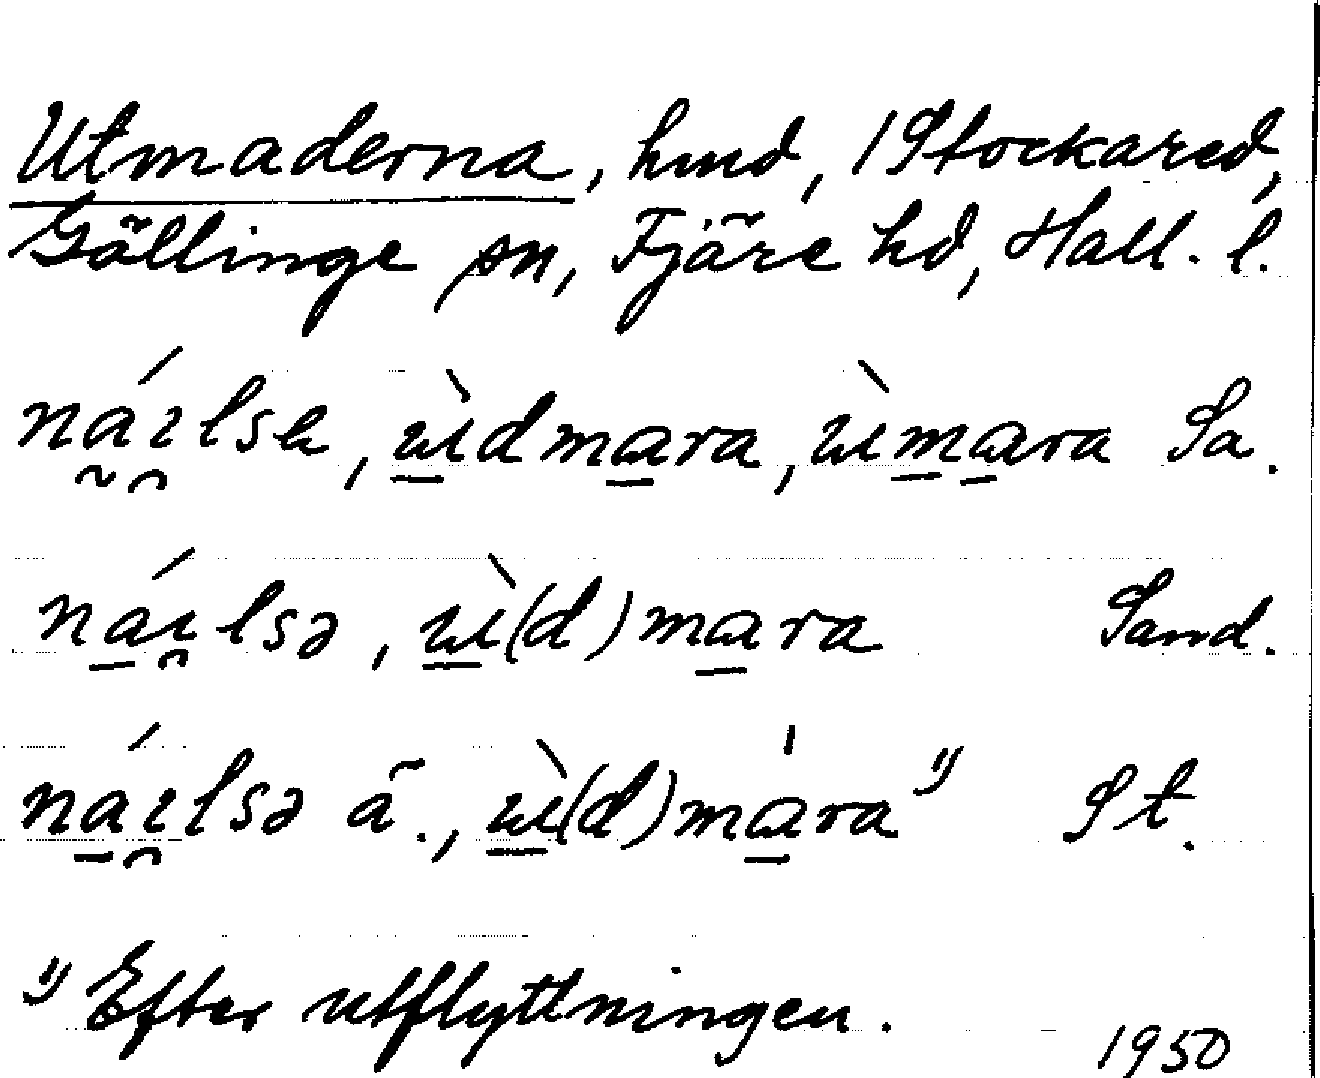 Utmaderna, hmd, 1 Stockared,
Gällinge sn, Fjäre hd, Hall. l.
náılsɐ, ùıdmara, ùımara Sa.
náılsə, ùı(d)mara Sand.
náılsə ä., ùı(d)mˈara ¹⁾ St.
¹⁾ Efter utflyttningen.
1950